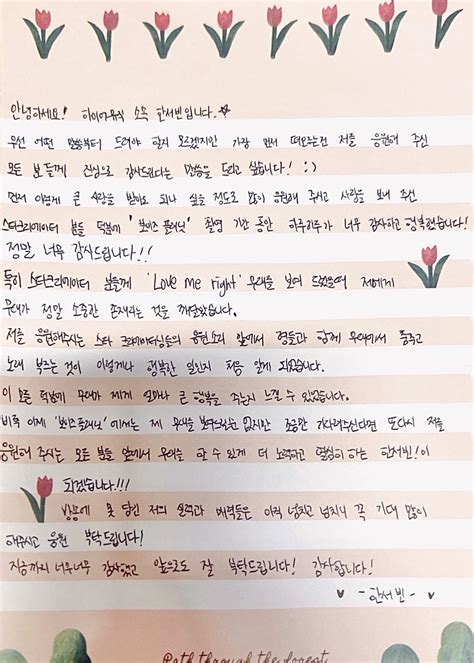 안녕하세요! 하이어뮤직 소속 한서빈입니다.☆
우선 어떤 말씀부터 드려야 할지 모르겠지만 가장 먼저 떠오르는건 저를 응원해 주신
모든 분들께 진심으로 감사드린다는 말씀을 드리고 싶습니다! :)
먼저 이렇게 큰 사랑을 받아도 되나 싶을 정도로 많이 응원해 주시고 사랑을 보내 주신
스타크리에이터 분들 덕분에 '보이즈 플래닛' 촬영 기간 동안 하루하루가 너무 감사하고 행복했습니다!
정말 너무 감사드립니다!!
특히 스타크리에이터 분들께 'Love me right' 무대를 보여 드렸을때 저에게
무대가 정말 소중한 존재라는 것을 깨달았습니다.
저를 응원해주시는 스타 크리에이터님들의 응원소리 앞에서 형들과 함께 무대에서 춤추고
노래 부르는 것이 이렇게나 행복한 일인지 처음 알게 되었습니다.
이 모든 덕분에 무대가 제게 얼마나 큰 행복을 주는지 느낄 수 있었습니다.
비록 이제 '보이즈플래닛'에서는 제 무대를 보여드릴순 없지만 조금만 기다려주신다면 또다시 저를
응원해 주시는 모든 분들 앞에서 무대를 할 수 있게 더 노력하고 열심히 하는 한서빈!이
되겠습니다!!!
방송에 못 담긴 저의 실력과 매력들은 아직 넘치고 넘치니 꼭 기대 많이
해주시고 응원 부탁드립니다!
지금까지 너무너무 감사했고 앞으로도 잘 부탁드립니다! 감사합니다!
♥ -한서빈- ♥
Path through the forest